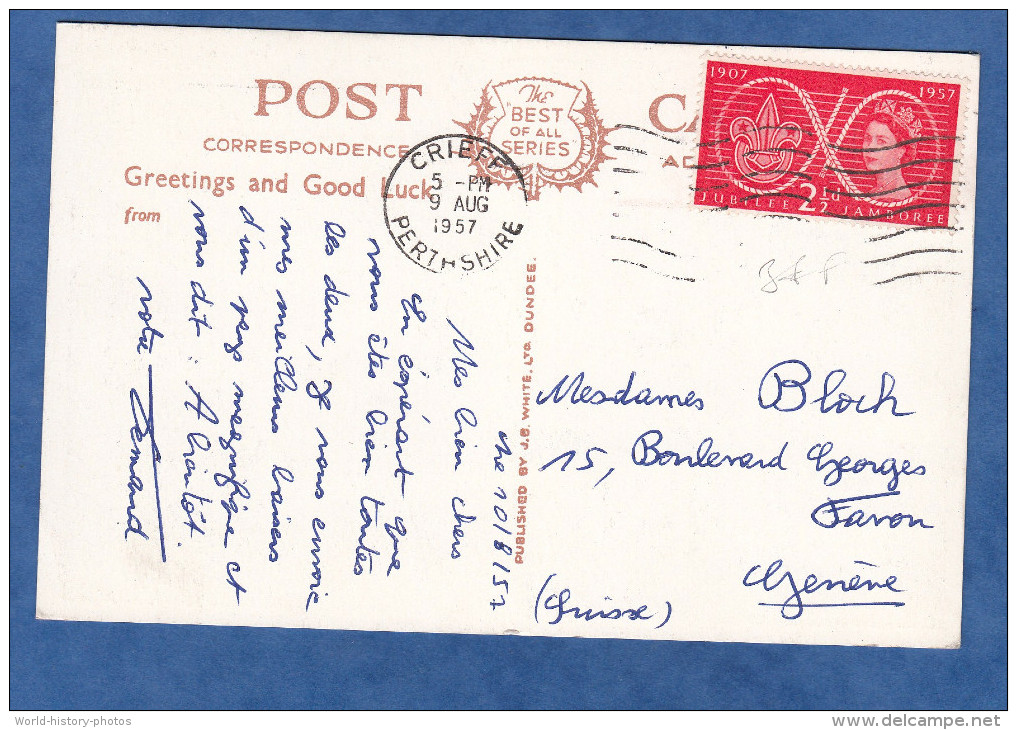 POST CA
CORRESPONDENCE
AD
The
"BEST
OF ALL
SERIES"
Greetings and Good Luck
from
CRIEFF
5 - PM
9 AUG
1957
PERTHSHIRE
1907
1957
2½d
JUBILEE JAMBOREE
PUBLISHED BY J.B. WHITE, LTD. DUNDEE.
10/8/57
Mes bien chers
En espérant que
vous êtes bien toutes
les deux, je vous envoie
mes meilleurs baisers
d'un pays magnifique et
vous dit: A bientôt.
votre
Mesdames Bloch
15, Boulevard Georges
Favon
Genève
(Suisse)
World-history-photos
delcampe.net